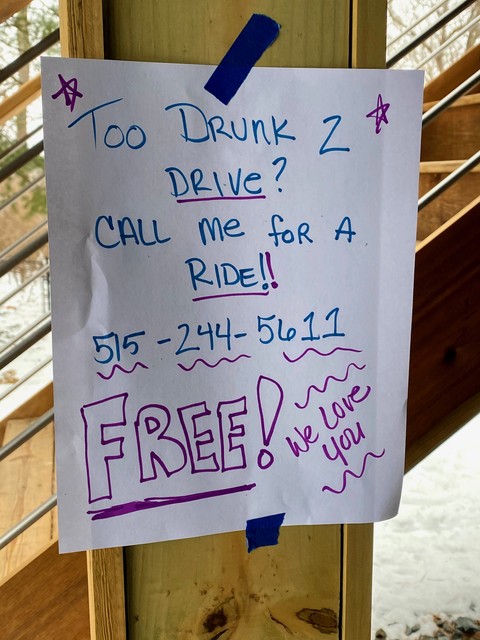 Too DRUNK 2
DRIVE?
CALL me foR A
RIDE!!
515-244-5611
FREE!
We Love
you